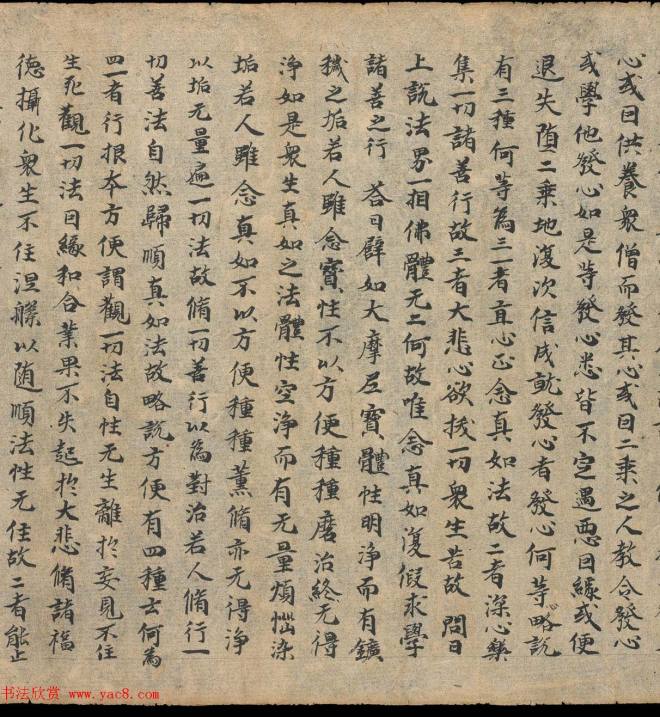 心或曰供養衆僧而發其心或曰二乘之人教令發心
或學他發心如是等發心悉皆不定遇惡曰緣或便
退失墮二乘地復次信成就發心者發心何等略說
有三種何等為三一者直心正念真如法故二者深心樂
集一切諸善行故三者大悲心欲拔一切衆生苦故 問曰
上說法界一相佛體无二何故唯念真如復假求學
諸善之行 荅曰辟如大摩尼寶體性明淨而有鑛
穢之垢若人雖念寶性不以方便種種磨治終无得
淨如是衆生真如之法體性空淨而有无量煩惱染
垢若人雖念真如不以方便種種薰脩亦无得淨
以垢无量遍一切法故脩一切善行以為對治若人脩行一
切善法自然歸順真如法故略說方便有四種云何為
四一者行根本方便謂觀一切法自性无生離於妄見不住
生死觀一切法曰緣和合業果不失起於大悲脩諸福
德攝化衆生不住涅槃以隨順法性无住故二者能止
书法欣赏 www.yac8.com